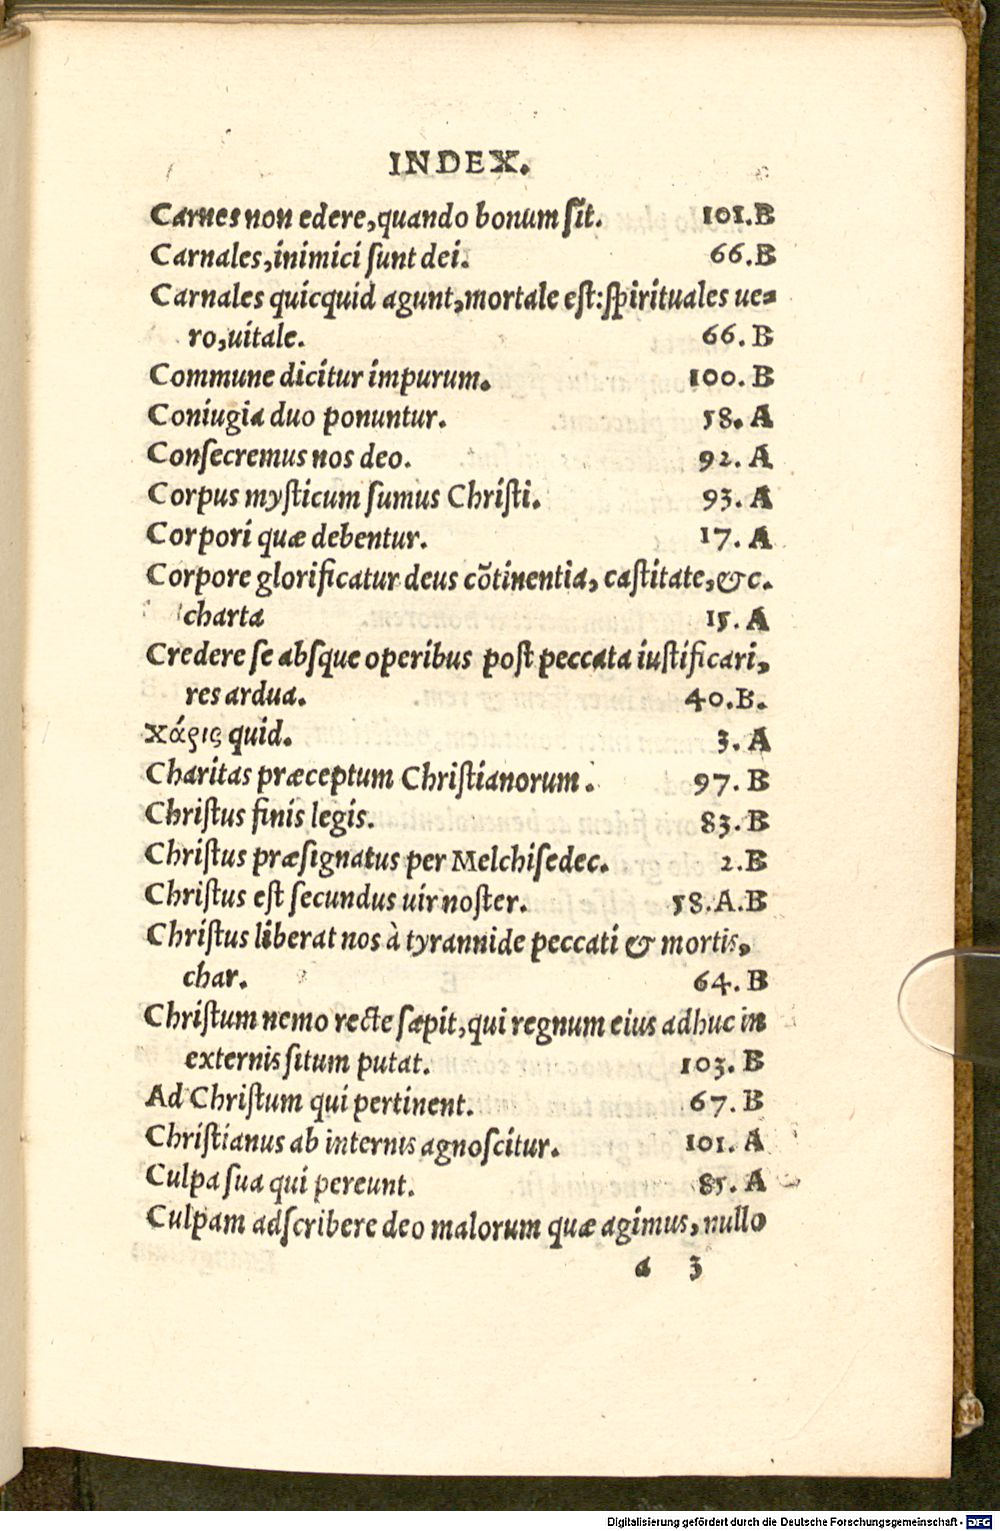 INDEX.
Carnes non edere, quando bonum ſit. 101.B
Carnales, inimici ſunt dei. 66.B
Carnales quicquid agunt, mortale eſt: ſpirituales ue=
ro, uitale. 66.B
Commune dicitur impurum. 100.B
Coniugia duo ponuntur. 58.A
Conſecremus nos deo. 92.A
Corpus myſticum ſumus Chriſti. 93.A
Corpori quæ debentur. 17.A
Corpore glorificatur deus cõtinentia, caſtitate, &c.
charta 15.A
Credere ſe abſque operibus poſt peccata iuſtificari,
res ardua. 40.B.
χάρις quid. 3.A
Charitas præceptum Chriſtianorum. 97.B
Chriſtus finis legis. 83.B
Chriſtus præſignatus per Melchiſedec. 2.B
Chriſtus eſt ſecundus uir noſter. 58.A.B
Chriſtus liberat nos à tyrannide peccati & mortis,
char. 64.B
Chriſtum nemo recte ſapit, qui regnum eius adhuc in
externis ſitum putat. 103.B
Ad Chriſtum qui pertinent. 67.B
Chriſtianus ab internis agnoſcitur. 101.A
Culpa ſua qui pereunt. 85.A
Culpam adſcribere deo malorum quæ agimus, nullo
a 3
Digitalisierung gefördert durch die Deutsche Forschungsgemeinschaft - DFG